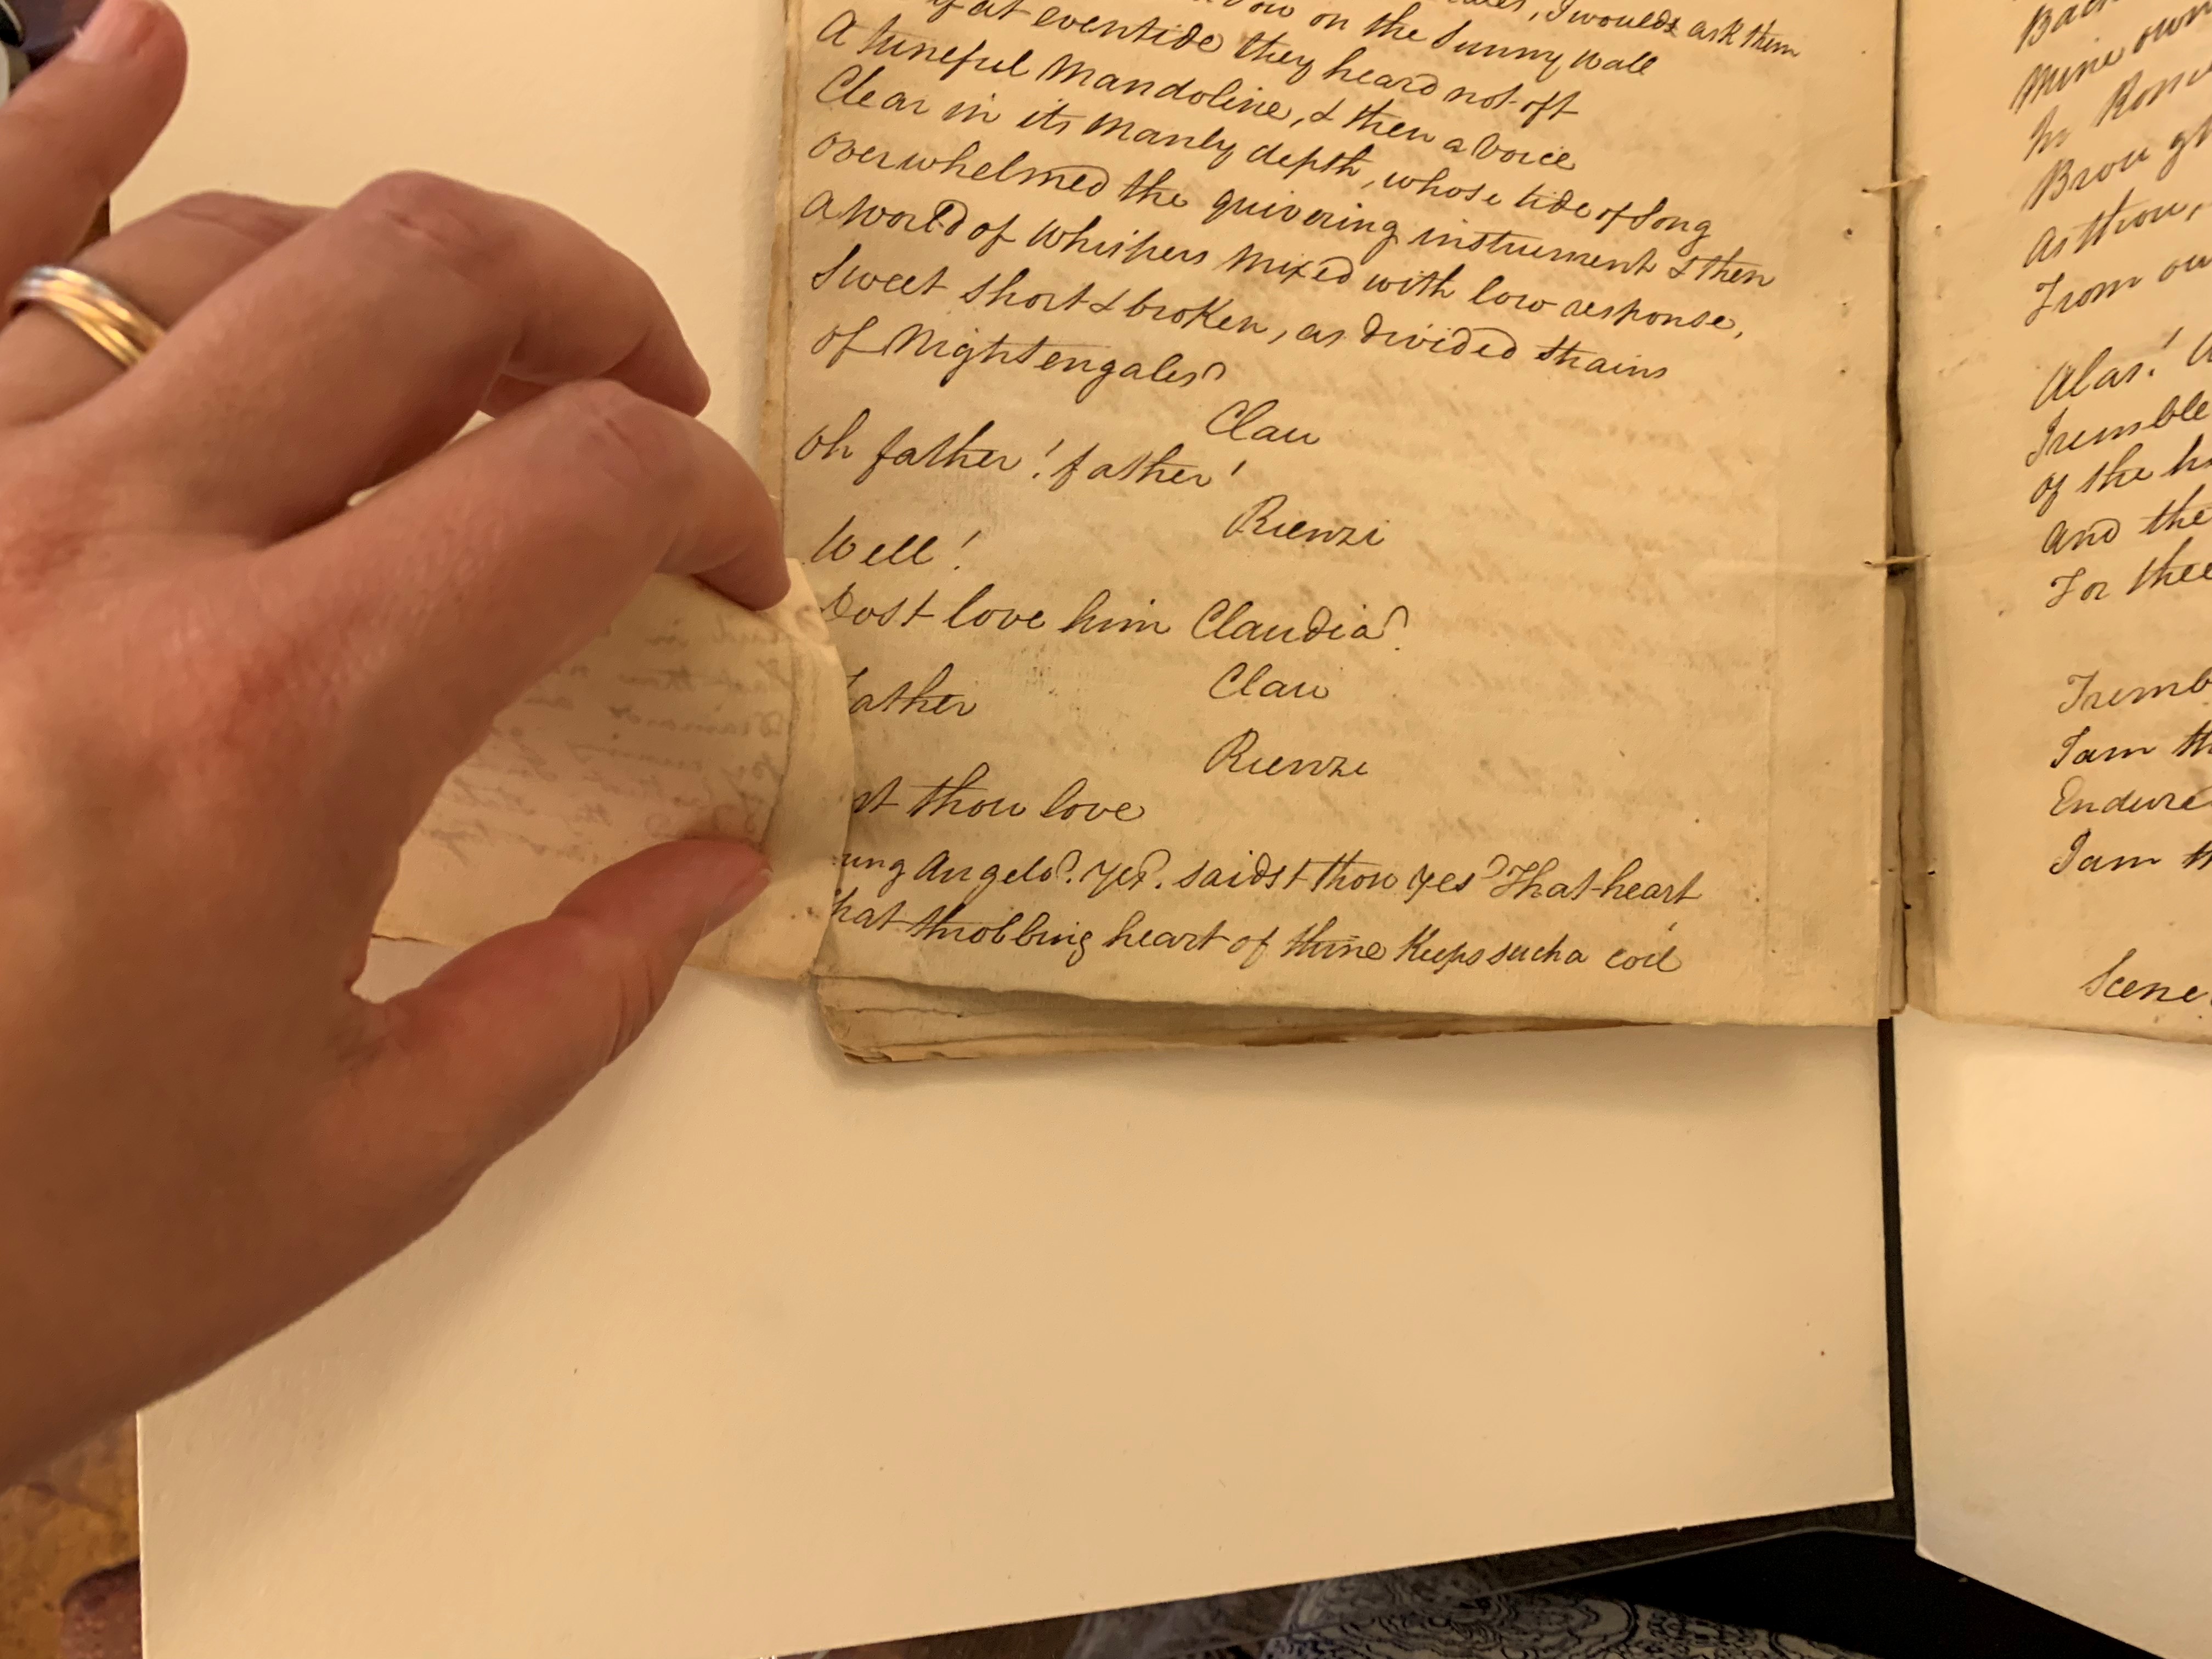 on the Sunny wall
if at eventide they heard not oft
A tuneful Mandoline, & then a Voice
Clear in its Manly depth, whose tide of Song
overwhelmed the quivering instrument & then
a World of Whispers Mixed with low response,
Sweet short & broken, as divided strains
of Nightengales?
Clau
Oh father! father!
Rienzi
Well!
Dost love him Claudia?
Clau
ather
Rienzi
st thou love
ung Angelo? Yes? saidst thou Yes? That heart
hat throbbing heart of thine Keeps such a coil
Mine own
Brough
As thou,
From ou
Alas!
Tremble
of the h
And the
For thee
Tremb
I am th
Endure
I am
Scene